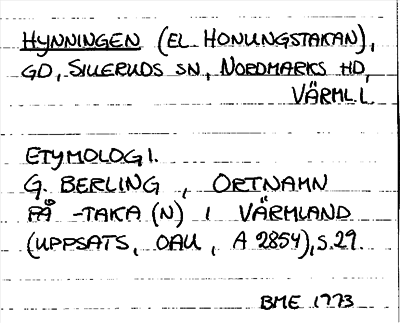 HYNNINGEN (EL. HONUNGSTAKAN),
GD, SILLERUDS SN., NORDMARKS HD,
VÄRML L.
ETYMOLOGI.
G. BERLING, ORTNAMN
PÅ -TAKA (N) I VÄRMLAND
(UPPSATS, OAU, A 2854), S. 29.
BME 1773